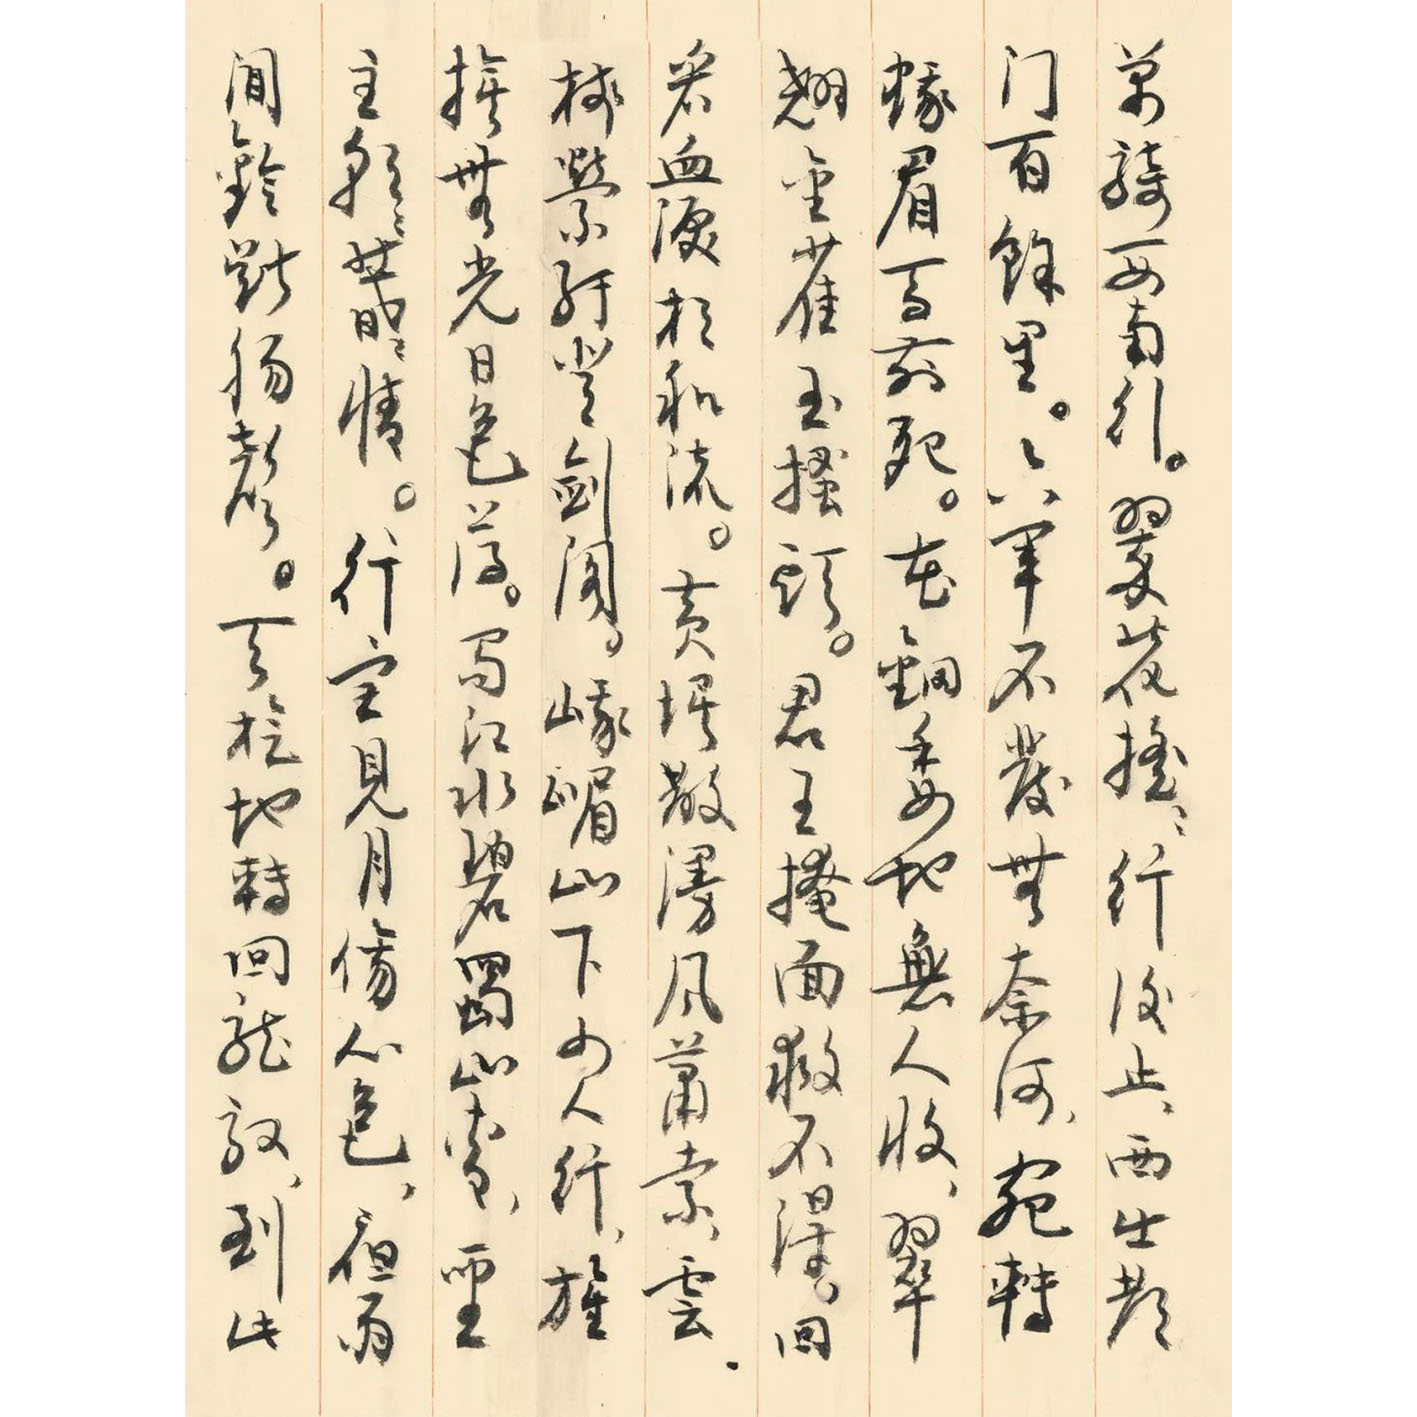 萬騎西南行。翠花搖〻行復止、西出都
门百餘里。六軍不發無奈何、宛轉
蛾眉馬前死。花鈿委地無人收、翠
翹金雀玉搔頭。君王掩面救不得、回
看血淚相和流。黄埃散漫風蕭索、雲
棧縈紆登劍閣。峨嵋山下少人行、旌
旗無光日色薄。蜀江水碧蜀山青、聖
主朝〻暮〻情。行宫見月傷心色、夜雨
聞鈴斷腸聲。天旋地轉回龍馭、到此